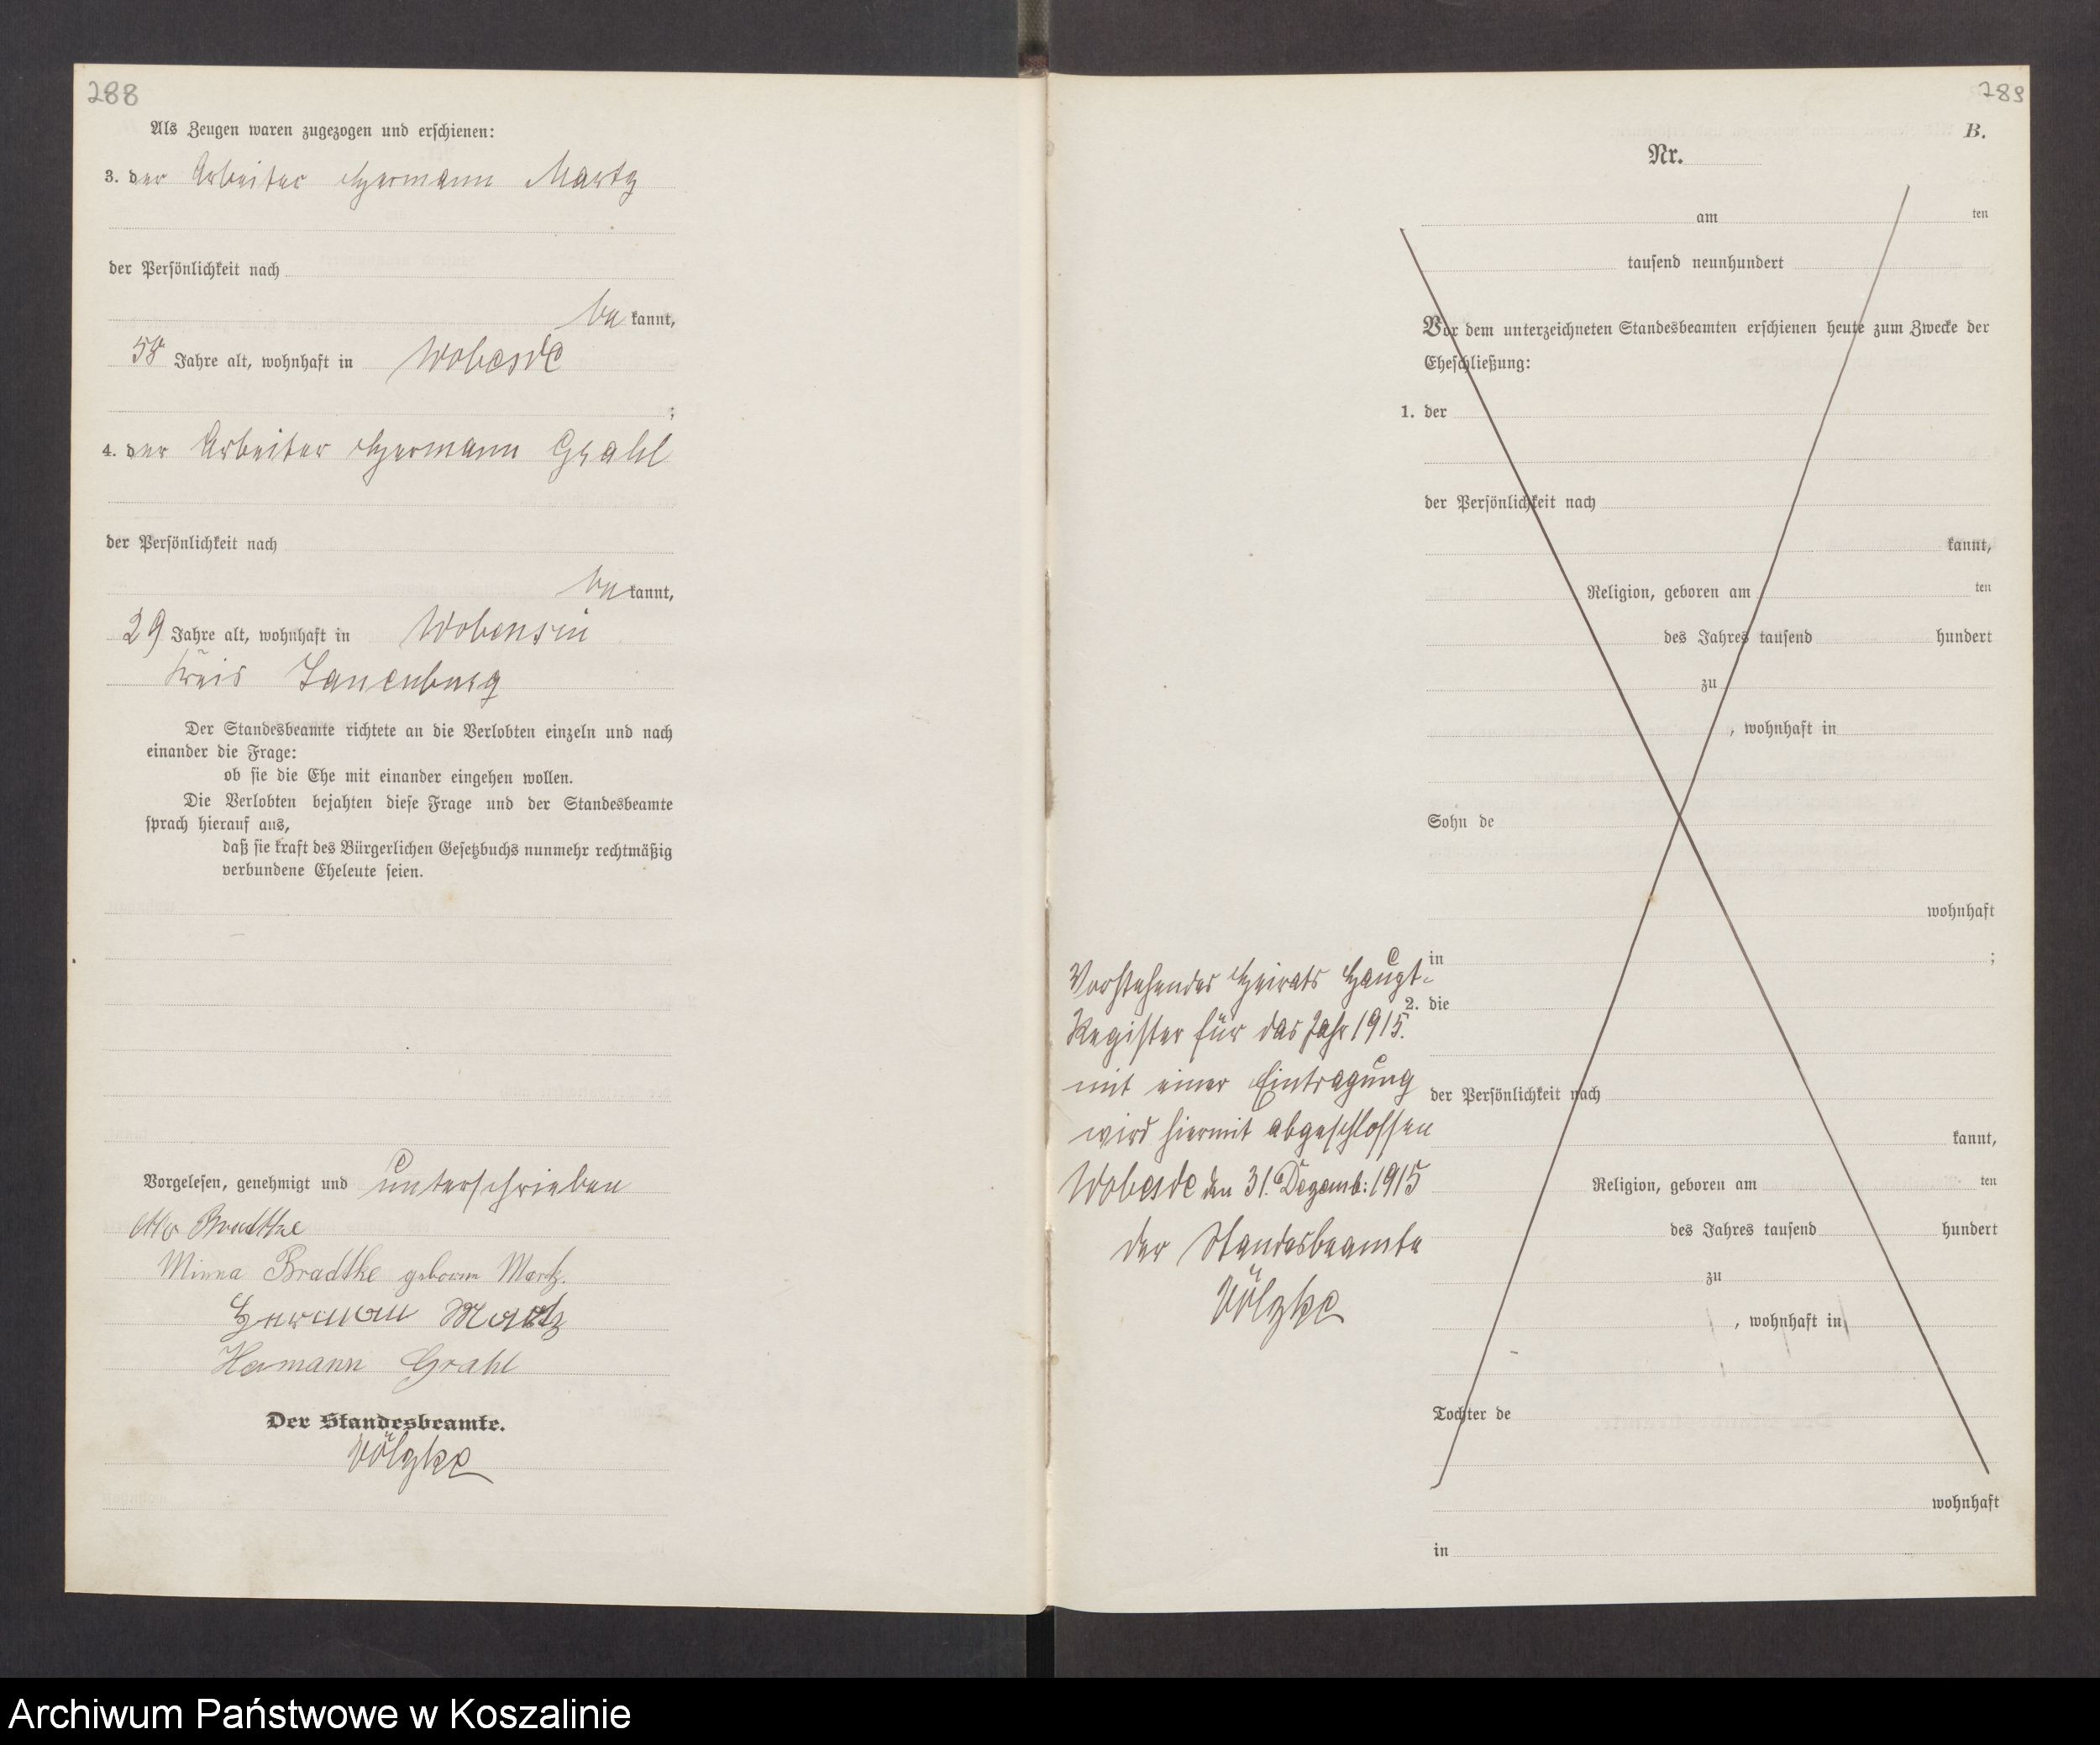 288
Als Zeugen waren zugezogen und erschienen:
3. der Arbeiter Hermann Martz
der Persönlichkeit nach
be kannt,
58 Jahre alt, wohnhaft in Wobesde
;
4. der Arbeiter Hermann Grahl
der Persönlichkeit nach
be kannt,
29 Jahre alt, wohnhaft in Wobensin
Kreis Lauenburg
Der Standesbeamte richtete an die Verlobten einzeln und nach
einander die Frage:
ob sie die Ehe mit einander eingehen wollen.
Die Verlobten bejahten diese Frage und der Standesbeamte
sprach hierauf aus,
daß sie kraft des Bürgerlichen Gesetzbuchs nunmehr rechtmäßig
verbundene Eheleute seien.
Vorgelesen, genehmigt und unterschrieben
Otto Bradtke
Minna Bradtke geboren Martz.
Herman Martz
Hermann Grahl
Der Standesbeamte.
Völzke
289
B.
Nr.
am ten
tausend neunhundert
Vor dem unterzeichneten Standesbeamten erschienen heute zum Zwecke der
Eheschließung:
1. der
der Persönlichkeit nach
kannt,
Religion, geboren am ten
des Jahres tausend hundert
zu
, wohnhaft in
Sohn de
wohnhaft
in ;
2. die
der Persönlichkeit nach
kannt,
Religion, geboren am ten
des Jahres tausend hundert
zu
, wohnhaft in
Tochter de
wohnhaft
in
Vorstehendes Heirats Haupt-
Register für das Jahr 1915.
mit einer Eintragung
wird hiermit abgeschlossen
Wobesde den 31. Dezemb: 1915
der Standesbeamte
Völzke
Archiwum Państwowe w Koszalinie